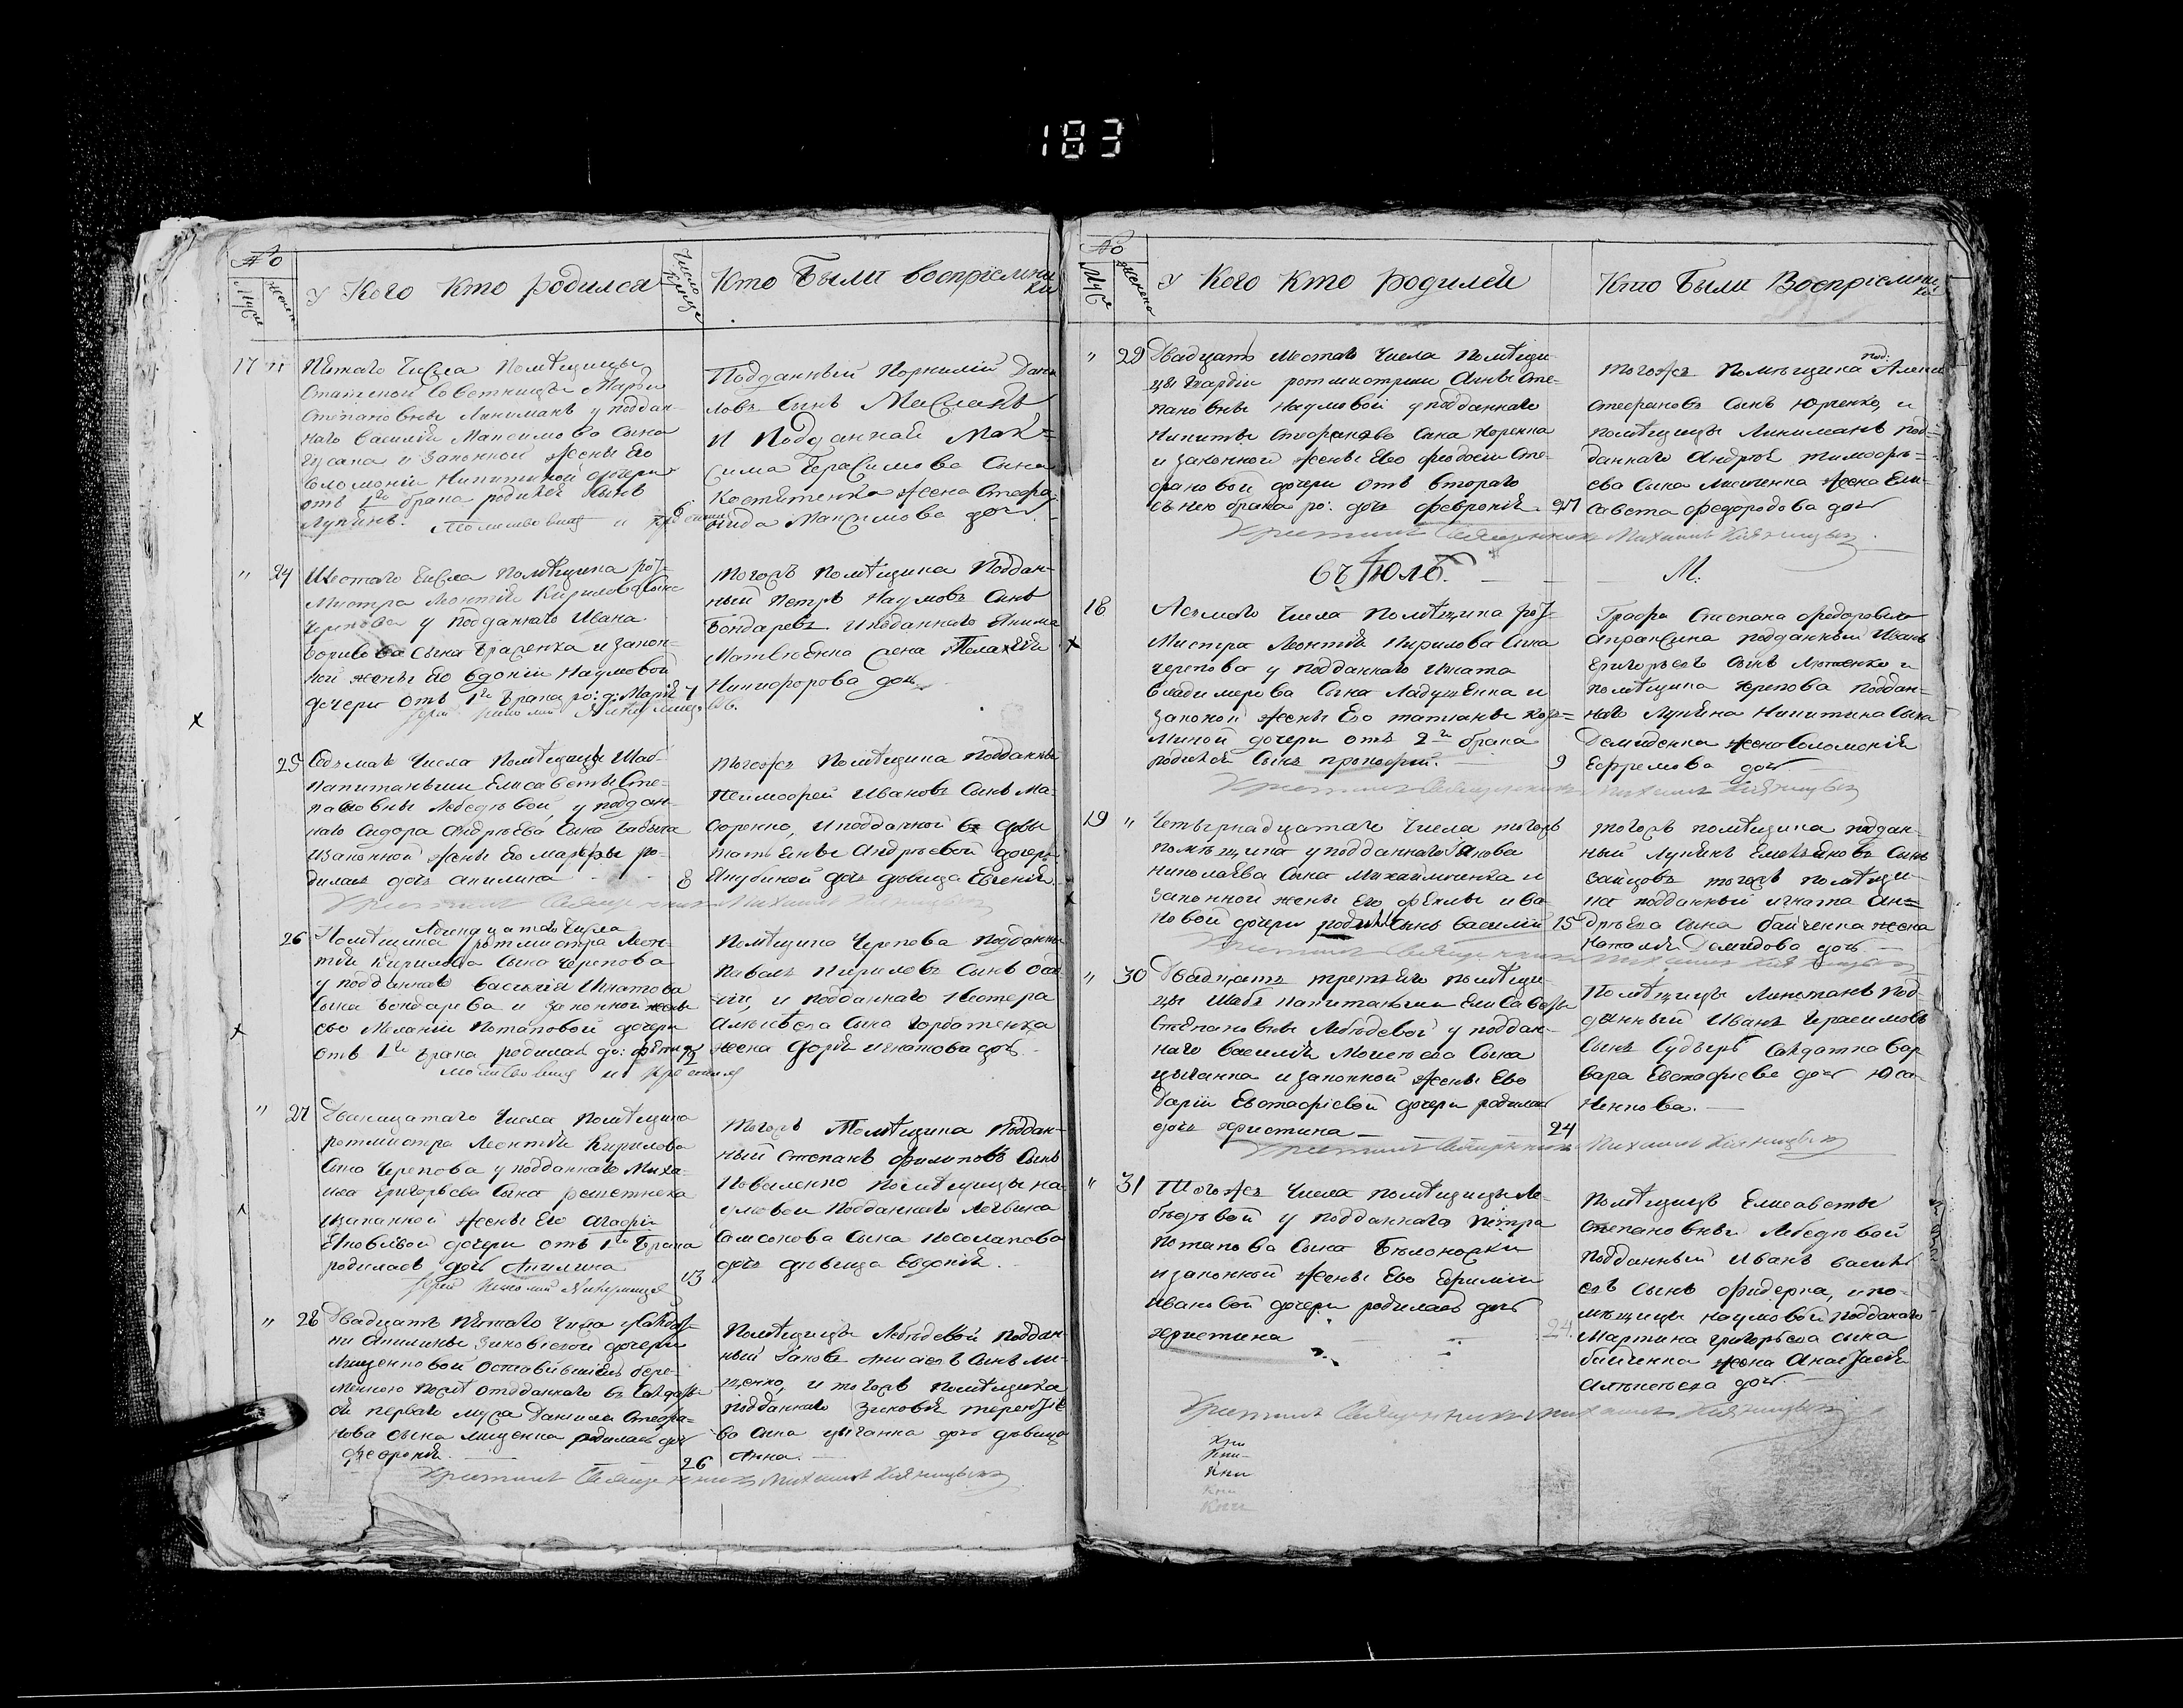 183
№
Муж
женс
У Кого Кто родился
Число
Кто Были воспріемни
ки
17
Пятаго Числа Помѣщицы
Статской Советницы Марьи
Степановны Линиманъ у поддан-
наго Василія Максимова Сына
Гусака и Законной жены Его
Соломоніи Никитиной дочери
отъ 1го брака родился Сынъ
Лукіянъ.
6
Подданный Корнилій Дани
ловъ Сынъ Маслакъ
И Подданнаго Мак=
сима Герасимова Сына
Костѣтенка жена Стефа
нида Максимова дочь
" 24
Шестаго Числа Помѣщика рот-
мистра Леонтія Кирилова Сына
Черепова у Подданнаго Ивана
Борисова Сына Брасенка и закон-
ной жены Его Евдокіи Наумовой
дочери отъ 1го Брака ро: д: Марія
7
Тогожъ Помѣщика Поддан-
ный Петръ Наумовъ Сынъ
Бондаревъ. И подданнаго Якима
Матвѣенка жена Пелагія
Никифорова дочь
25
Седьмаго Числа Помѣщицы Штаб-
Капитанши Елисаветы Сте-
пановны Лебедевой, у поддан-
наго Сидора Андрѣева Сына
И законной жены Его Марфы ро-
дилась дочь Акилина
8
Тогожъ Помѣщика Подданный
Тимофей Ивановъ Сынъ Ма-
сюренко, и подданной вдовы
Татьяны Андреевой дочери
Якубиной дочь дѣвица Евгенія
26
Двенадцатаго Числа
Помѣщика ротмистра Леон-
тія Кирилова Сына Черепова
у подданнаго Василія Игнатова
Сына Бондарева и законной жены
его Меланіи Потаповой дочери
отъ 1го Брака родилась до:
12
Помѣщика Черепова Подданный
Павелъ Кириловъ Сынъ
и подданнаго Нестера
Алексѣева Сына Горбатенка
жена Дарія Игнатова дочь
" 27
Тринадцатаго Числа Помѣщика
ротмистра Леонтія Кирилова
Сына Черепова у подданнаго Миха-
ила Григорьева Сына решетняка
И законной жены Его Агафіи
Яковлевой дочери отъ 1го Брака
родилась дочь Акилина
13
Тогожъ Помѣщика Поддан-
ный Степанъ Филиповъ Сынъ
Коваленко Помѣщицы На-
умовой Подданнаго Логвина
Самсонова Сына Косолапова
дочь дѣвица Евдокія.
" 28
Двадцать Пятаго Числа у Салдат-
ки Акилины Зиновіевой дочери
Лищенковой оставившейся бере-
менною после отданнаго въ Салдаты
ея перваго мужа Даніила Стефа-
нова Сына Лищенка родилась дочь
Февронія.
26
Помѣщицы Лебедевой Поддан-
ный Яковъ Сынъ Ли-
щенко, и тогожъ Помѣщика
Подданнаго Зиновія Терентіе-
ва Сына Цыганка дочь дѣвица
Анна.
Крестилъ Священникъ Михаилъ
№
Муж
женска
У Кого Кто родился
Кто Были Воспріемни
ки
" 29
Двадцать Шестаго Числа Помѣщи-
цы Гвардіи ротмистрши Анны Сте-
пановны Наумовой у подданнаго
Никиты Стефанова Сына Юрченка
и законной жены Его Феодосіи Сте-
фановой дочери отъ втораго
съ нею брака ро: дочь Февронія.
27
Тогожъ Помѣщика под:
Стефановъ Сынъ Юрченко, и
Помѣщицы Линиманъ под-
даннаго Андрея Тимофѣ-
ева Сына Лисченка жена Ели-
савета Федорова дочь
Крестилъ Священникъ Михаилъ
Въ Іюлѣ. М:
18
Осьмаго Числа Помѣщика рот-
мистра Леонтія Кирилова Сына
Черепова у подданнаго Игната
Владимерова Сына Ладущенка и
законной жены Его Татіаны Козь=
миной дочери отъ 2го брака
родился Сынъ Прокофій.
9
Графа Степана Федоровича
Апраксина подданный Иванъ
Григорьевъ Сынъ Лютенко и
помѣщика Черепова Поддан-
наго Лукіяна Никитина Сына
Демиденка жена Соломонія
Ефремова дочь.
Крестилъ Священникъ Михаилъ
19 "
Четырнадцатаго Числа тогожъ
помѣщика у подданнаго Якова
Николаева Сына Михайличенка и
законной жены его Феклы Ива-
новой дочери родился Сынъ Василій
15
Тогожъ помѣщика поддан-
ный Лукіянъ Емельяновъ Сынъ
Зайцовъ тогожъ помѣщи-
ка подданный Игната Ан=
дрѣева Сына Байченка жена
Наталія Демидова дочь
" 30
Двадцать третьяго помѣщи-
цы Штабъ Капитанши Елисаветы
Степановны Лебедевой у поддан-
наго Василія Моисеева Сына
Цыганка и законной жены Его
Даріи Евстафіевой дочери родилась
дочь Христина
24
Помѣщицы Линиманъ Под-
данный Иванъ Герасимовъ
Сынъ Салдатка Вар
вара Евстафиева дочь
Крестилъ Священникъ Михаилъ
" 31
Тогожъ Числа помѣщицы Ле-
бедевой у подданнаго Петра
Потапова Сына Бѣлоножки
и законной жены Его Ефиміи
Ивановой дочери родилась дочь
Христина
24.
Помѣщицы Елисаветы
Степановны Лебедевой
Подданный Иванъ Василь
евъ Сынъ Фидерка, и по-
мѣщицы Наумовой Подданаго
Мартина Григорьева Сына
Байченка жена Анастасія
Алексѣева дочь.
Крестилъ Священникъ Михаилъ